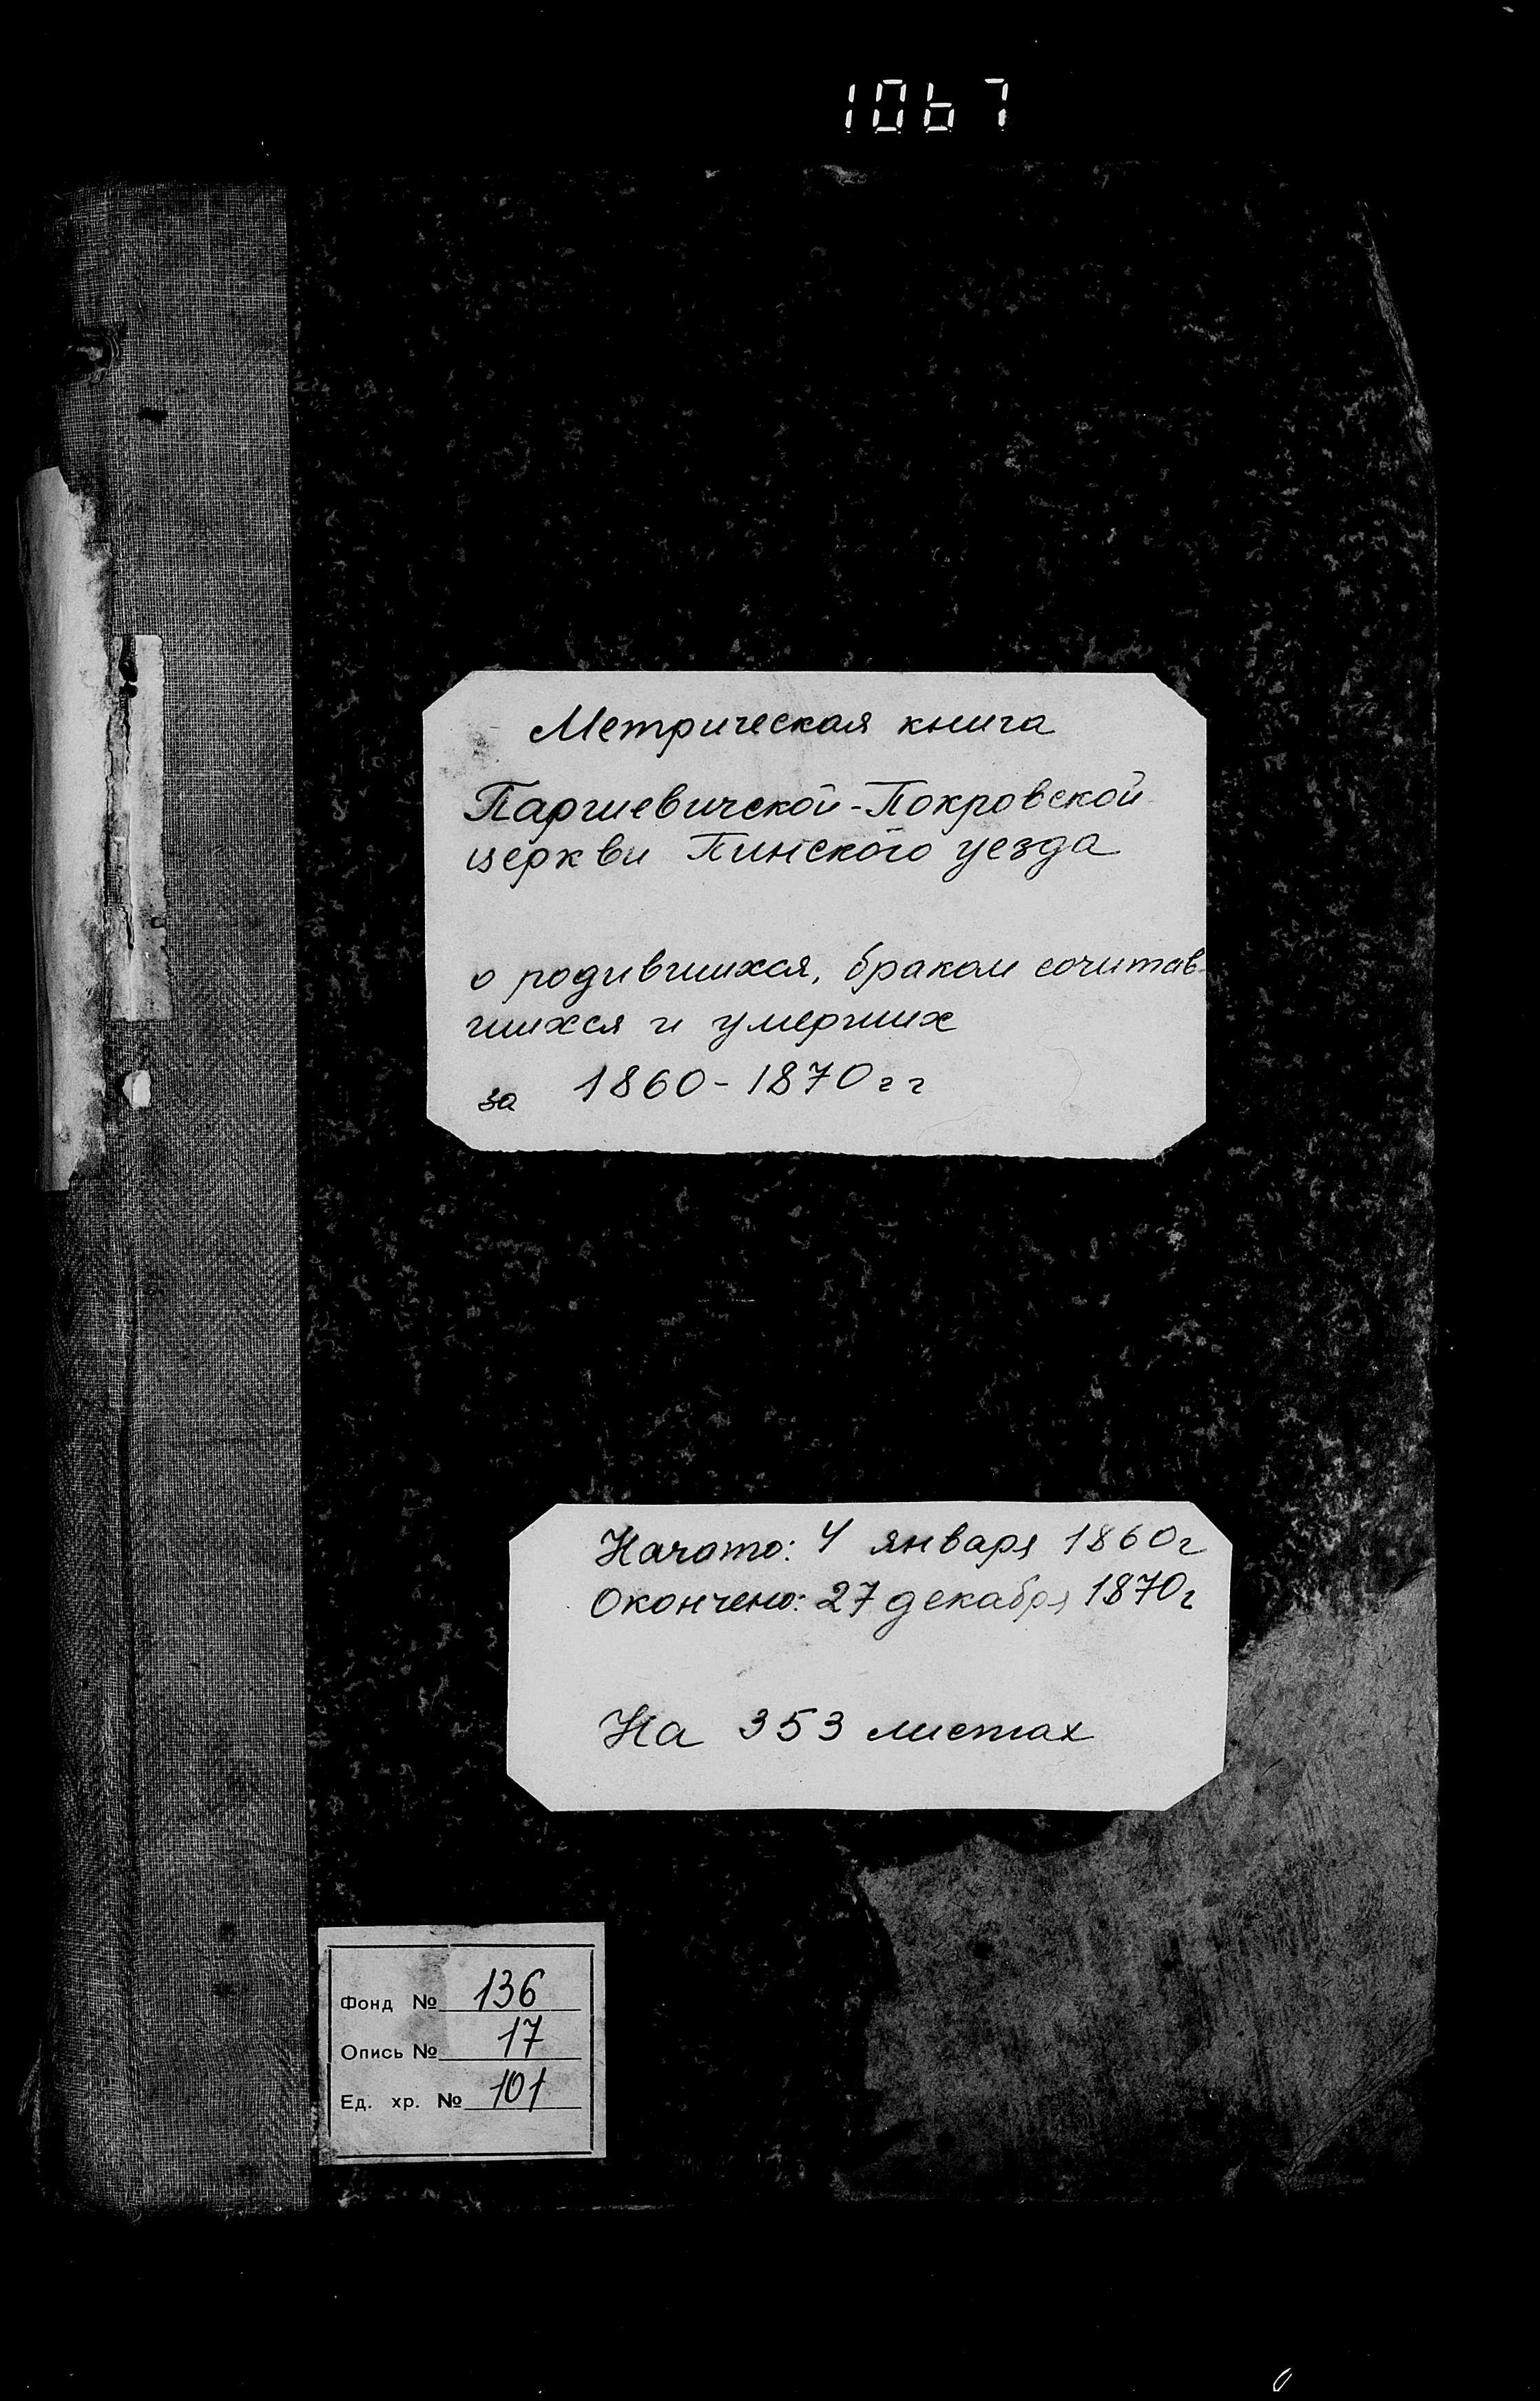 1067
Метрическая книга
Паршевичской-Покровской
церкви Пинского уезда
о родившихся, браком сочитав-
шихся и умерших
за 1860-1870 г г
Начато: 4 января 1860г
Окончено: 27 декабря 1870г
На 353 листах
Фонд № 136
Опись № 17
Ед. хр. № 101